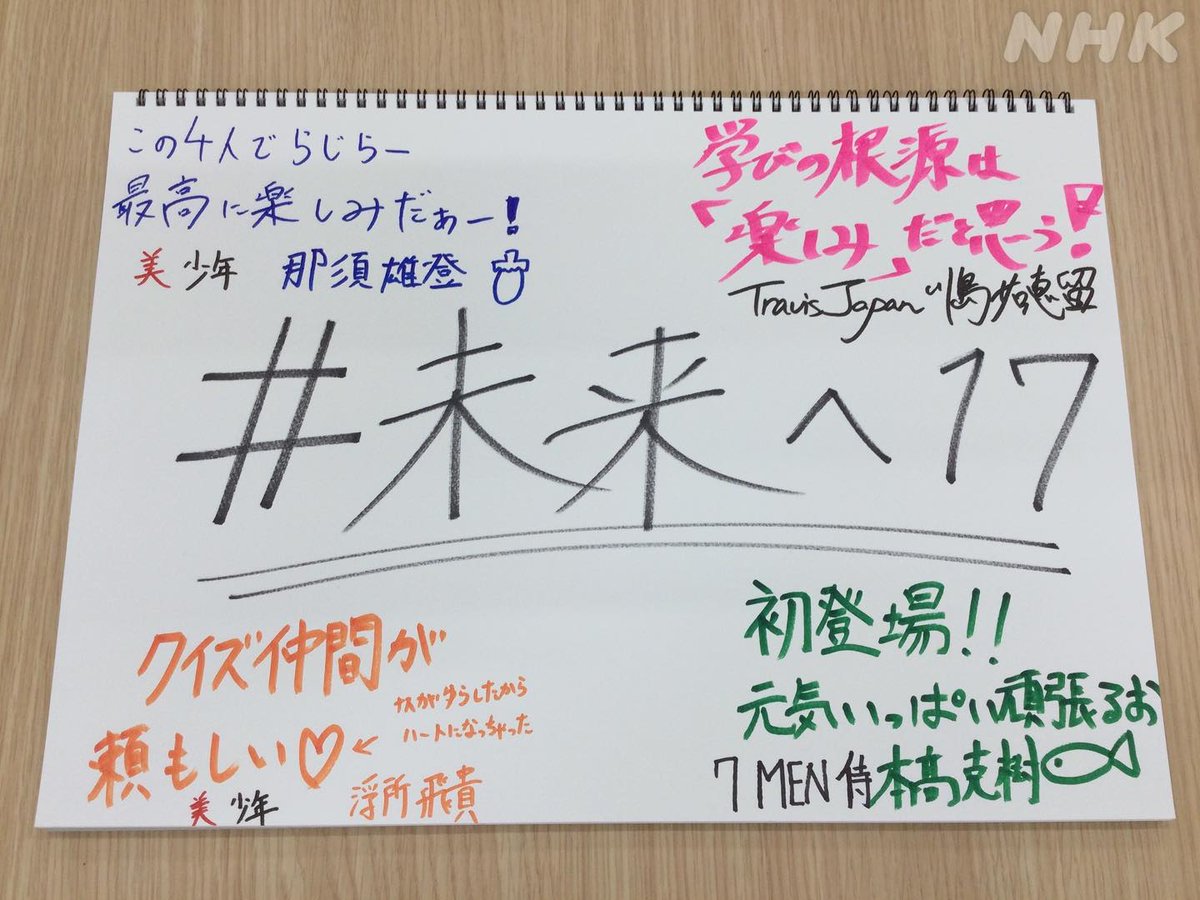 NHK
この4人でらじらー
最高に楽しみだぁー!
美 少年 那須雄登
学びの根源は
「楽しみ」だと思う!
Travis Japan 川島如恵留
#未来へ17
クイズ仲間が
頼もしい♡←
ナスがゆらしたから
ハートになっちゃった
美 少年 浮所飛貴
初登場!!
元気いっぱい頑張るお
7 MEN 侍 本髙克樹